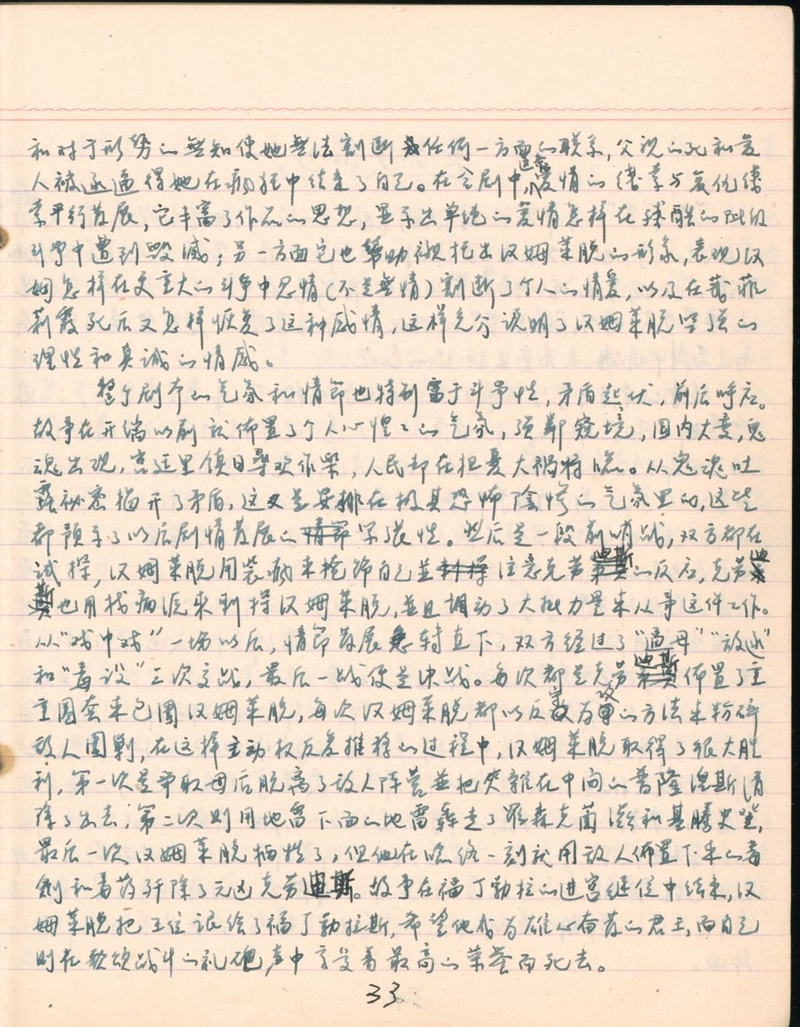 和对于形势的無知使她無法割断任何一方面的联系，父親的死和爱
人被逐逼得她在疯狂中结束了自己。在全剧中，这条爱情的线索与复仇线
索平行发展，它丰富了作品的思想，显示出单纯的爱情怎样在残酷的阶级
斗争中遭到毁滅；另一方面它也幫助襯托出汉姆莱脱的形象，表現汉
姆怎样在更重大的斗争中忍情（不是無情）割断了个人的情爱，以及在莪菲
莉霞死后又怎样恢复了这种感情，这样充分说明了汉姆莱脱坚强的
理性和真誠的情感。
整个剧本的气氛和情节也特别富于斗争性，矛盾起伏，前后呼应。
故事在开端以前就佈置了个人心惶惶的气氛，强鄰窥境，国内大变，鬼
魂出现，宫廷里镇日尋欢作樂，人民都在担憂大祸将臨。从鬼魂吐
露秘密揭开了矛盾，这又是安排在极其恐怖陰惨的气氛里的，这些
都预示了以后剧情发展的紧張性。然后是一段前哨战，双方都在
试探，汉姆莱脱用装疯来掩飾自己並注意克劳迪斯的反应，克劳迪
斯也用找病源来刺探汉姆莱脱，並且調动了大批力量来从事这件工作。
从“戏中戏”一場以后，情节发展急转直下，双方经过了“逼母”“放逐”
和“毒设”三次交战，最后一战便是决战。每次都是克劳迪斯佈置了主
重圈套来包圍汉姆莱脱，每次汉姆莱脱都以反守为攻的方法来粉碎
敌人圍剿，在这样主动权反复推移的过程中，汉姆莱脱取得了很大胜
利，第一次是爭取母后脱离了敌人阵营並把夾雜在中间的普隆涅斯清
除了出去；第二次则用地雷下面的地雷轟走了罗森克蘭滋和基騰史登，
最后一次汉姆莱脱牺牲了，但他在臨终一刻就用敌人佈置下来的毒
劍和毒药歼除了元凶克劳迪斯。故事在福丁勃拉的进宫继位中结束，汉
姆莱脱把王位讓给了福丁勃拉斯，希望他成为雄心奋发的君王，而自己
则在歌颂战斗的礼砲声中享受着最高的荣誉而死去。
33